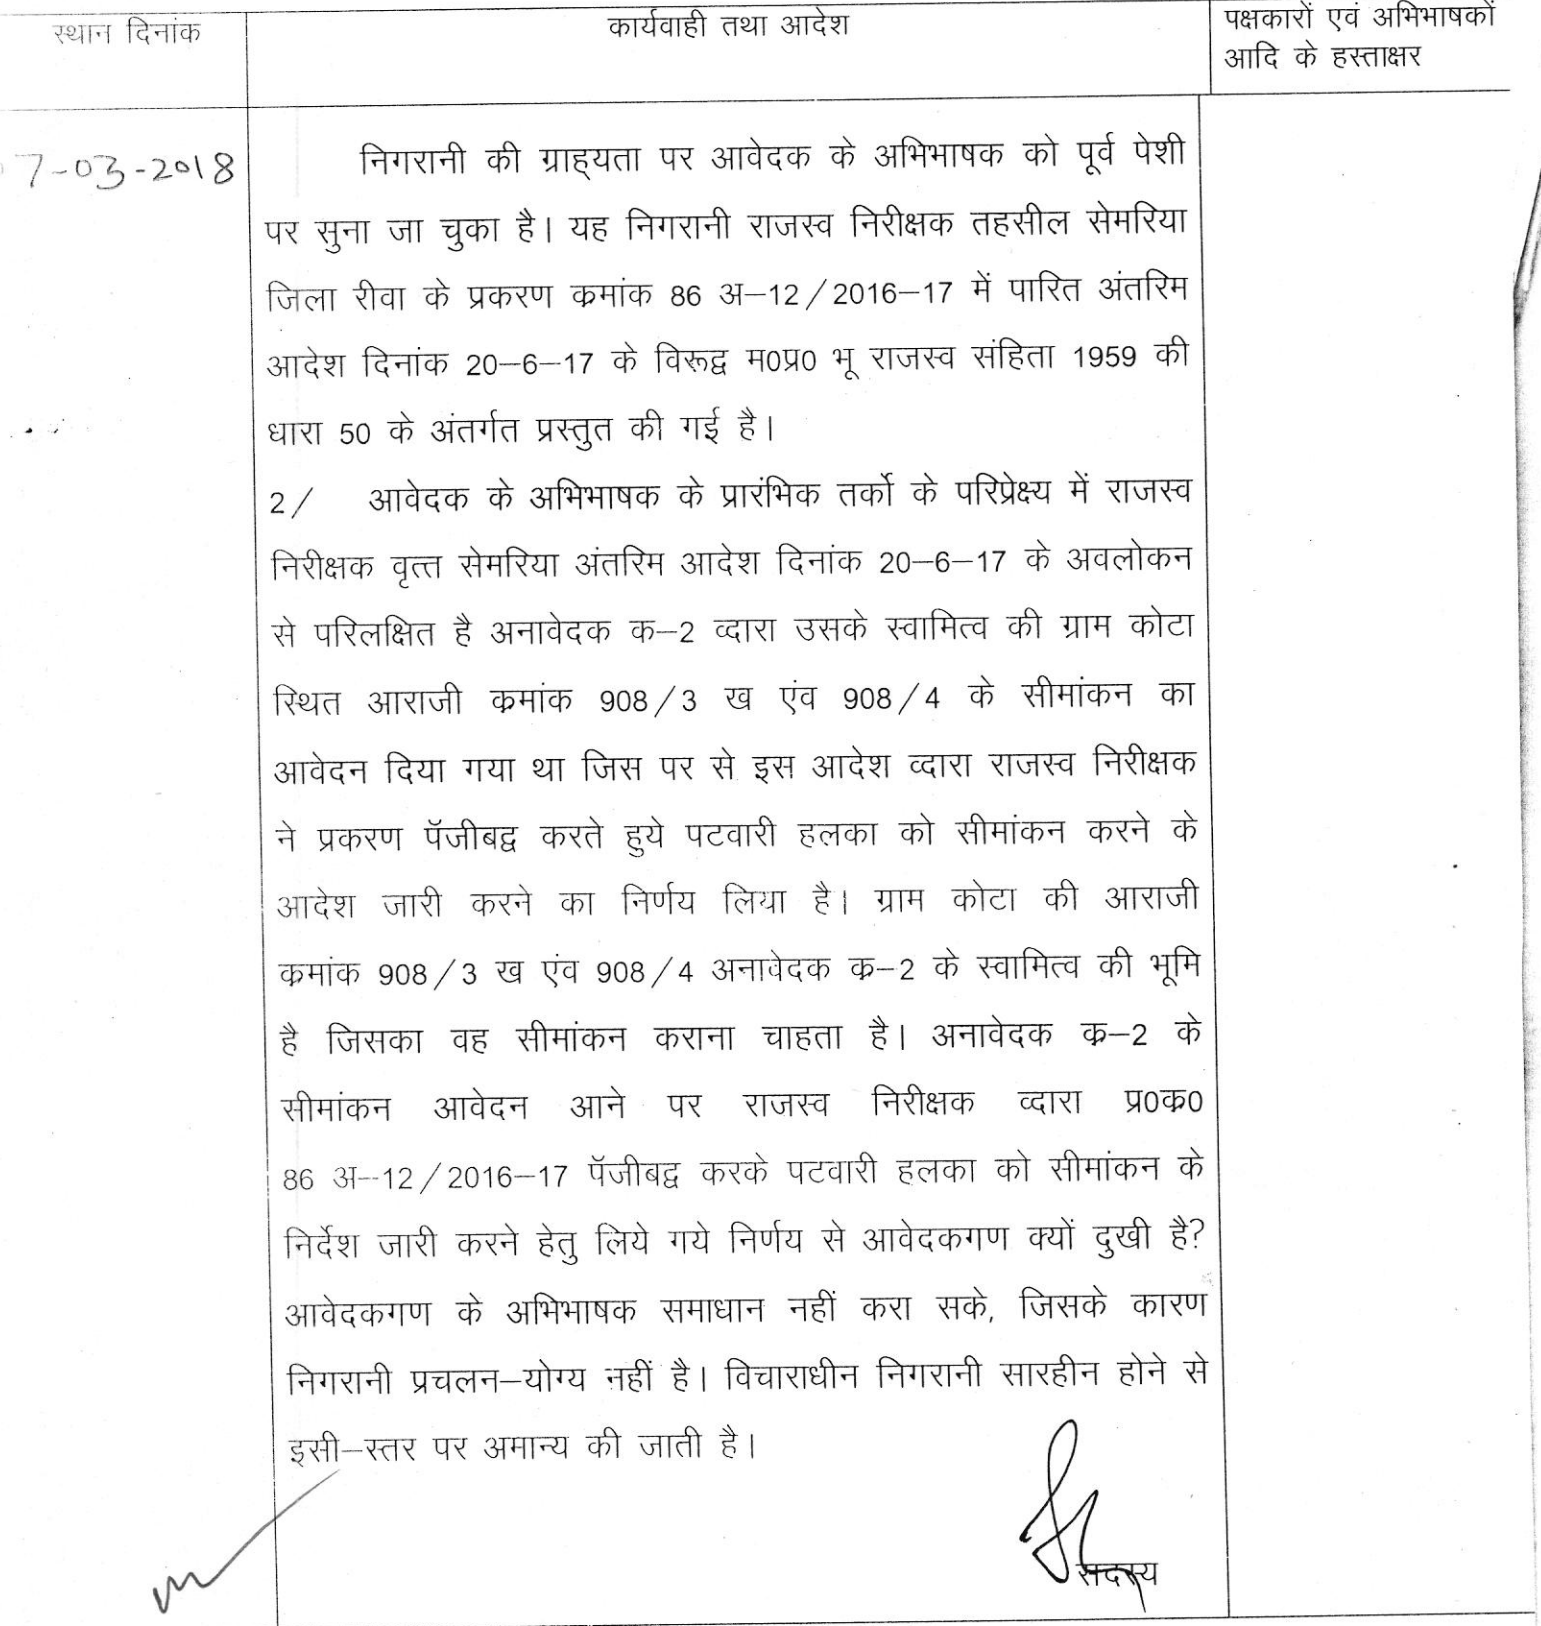 स्थान दिनांक
कार्यवाही तथा आदेश
पक्षकारों एवं अभिभाषकों
आदि के हस्ताक्षर
07-03-2018
निगरानी की ग्राह्यता पर आवेदक के अभिभाषक को पूर्व पेशी
पर सुना जा चुका है। यह निगरानी राजस्व निरीक्षक तहसील सेमरिया
जिला रीवा के प्रकरण क्रमांक 86 अ–12/2016–17 में पारित अंतरिम
आदेश दिनांक 20–6–17 के विरूद्व म0प्र0 भू राजस्व संहिता 1959 की
धारा 50 के अंतर्गत प्रस्तुत की गई है।
2/ आवेदक के अभिभाषक के प्रारंभिक तर्को के परिप्रेक्ष्य में राजस्व
निरीक्षक वृत्त सेमरिया अंतरिम आदेश दिनांक 20–6–17 के अवलोकन
से परिलक्षित है अनावेदक क्र–2 व्दारा उसके स्वामित्व की ग्राम कोटा
स्थित आराजी क्रमांक 908/3 ख एंव 908/4 के सीमांकन का
आवेदन दिया गया था जिस पर से इस आदेश व्दारा राजस्व निरीक्षक
ने प्रकरण पॅजीबद्व करते हुये पटवारी हलका को सीमांकन करने के
आदेश जारी करने का निर्णय लिया है। ग्राम कोटा की आराजी
क्रमांक 908/3 ख एंव 908/4 अनावेदक क्र–2 के स्वामित्व की भूमि
है जिसका वह सीमांकन कराना चाहता है। अनावेदक क्र–2 के
सीमांकन आवेदन आने पर राजस्व निरीक्षक व्दारा प्र0क्र0
86 अ–12/2016–17 पॅजीबद्व करके पटवारी हलका को सीमांकन के
निर्देश जारी करने हेतु लिये गये निर्णय से आवेदकगण क्यों दुखी है?
आवेदकगण के अभिभाषक समाधान नहीं करा सके, जिसके कारण
निगरानी प्रचलन–योग्य नहीं है। विचाराधीन निगरानी सारहीन होने से
इसी–स्तर पर अमान्य की जाती है।
सदस्य